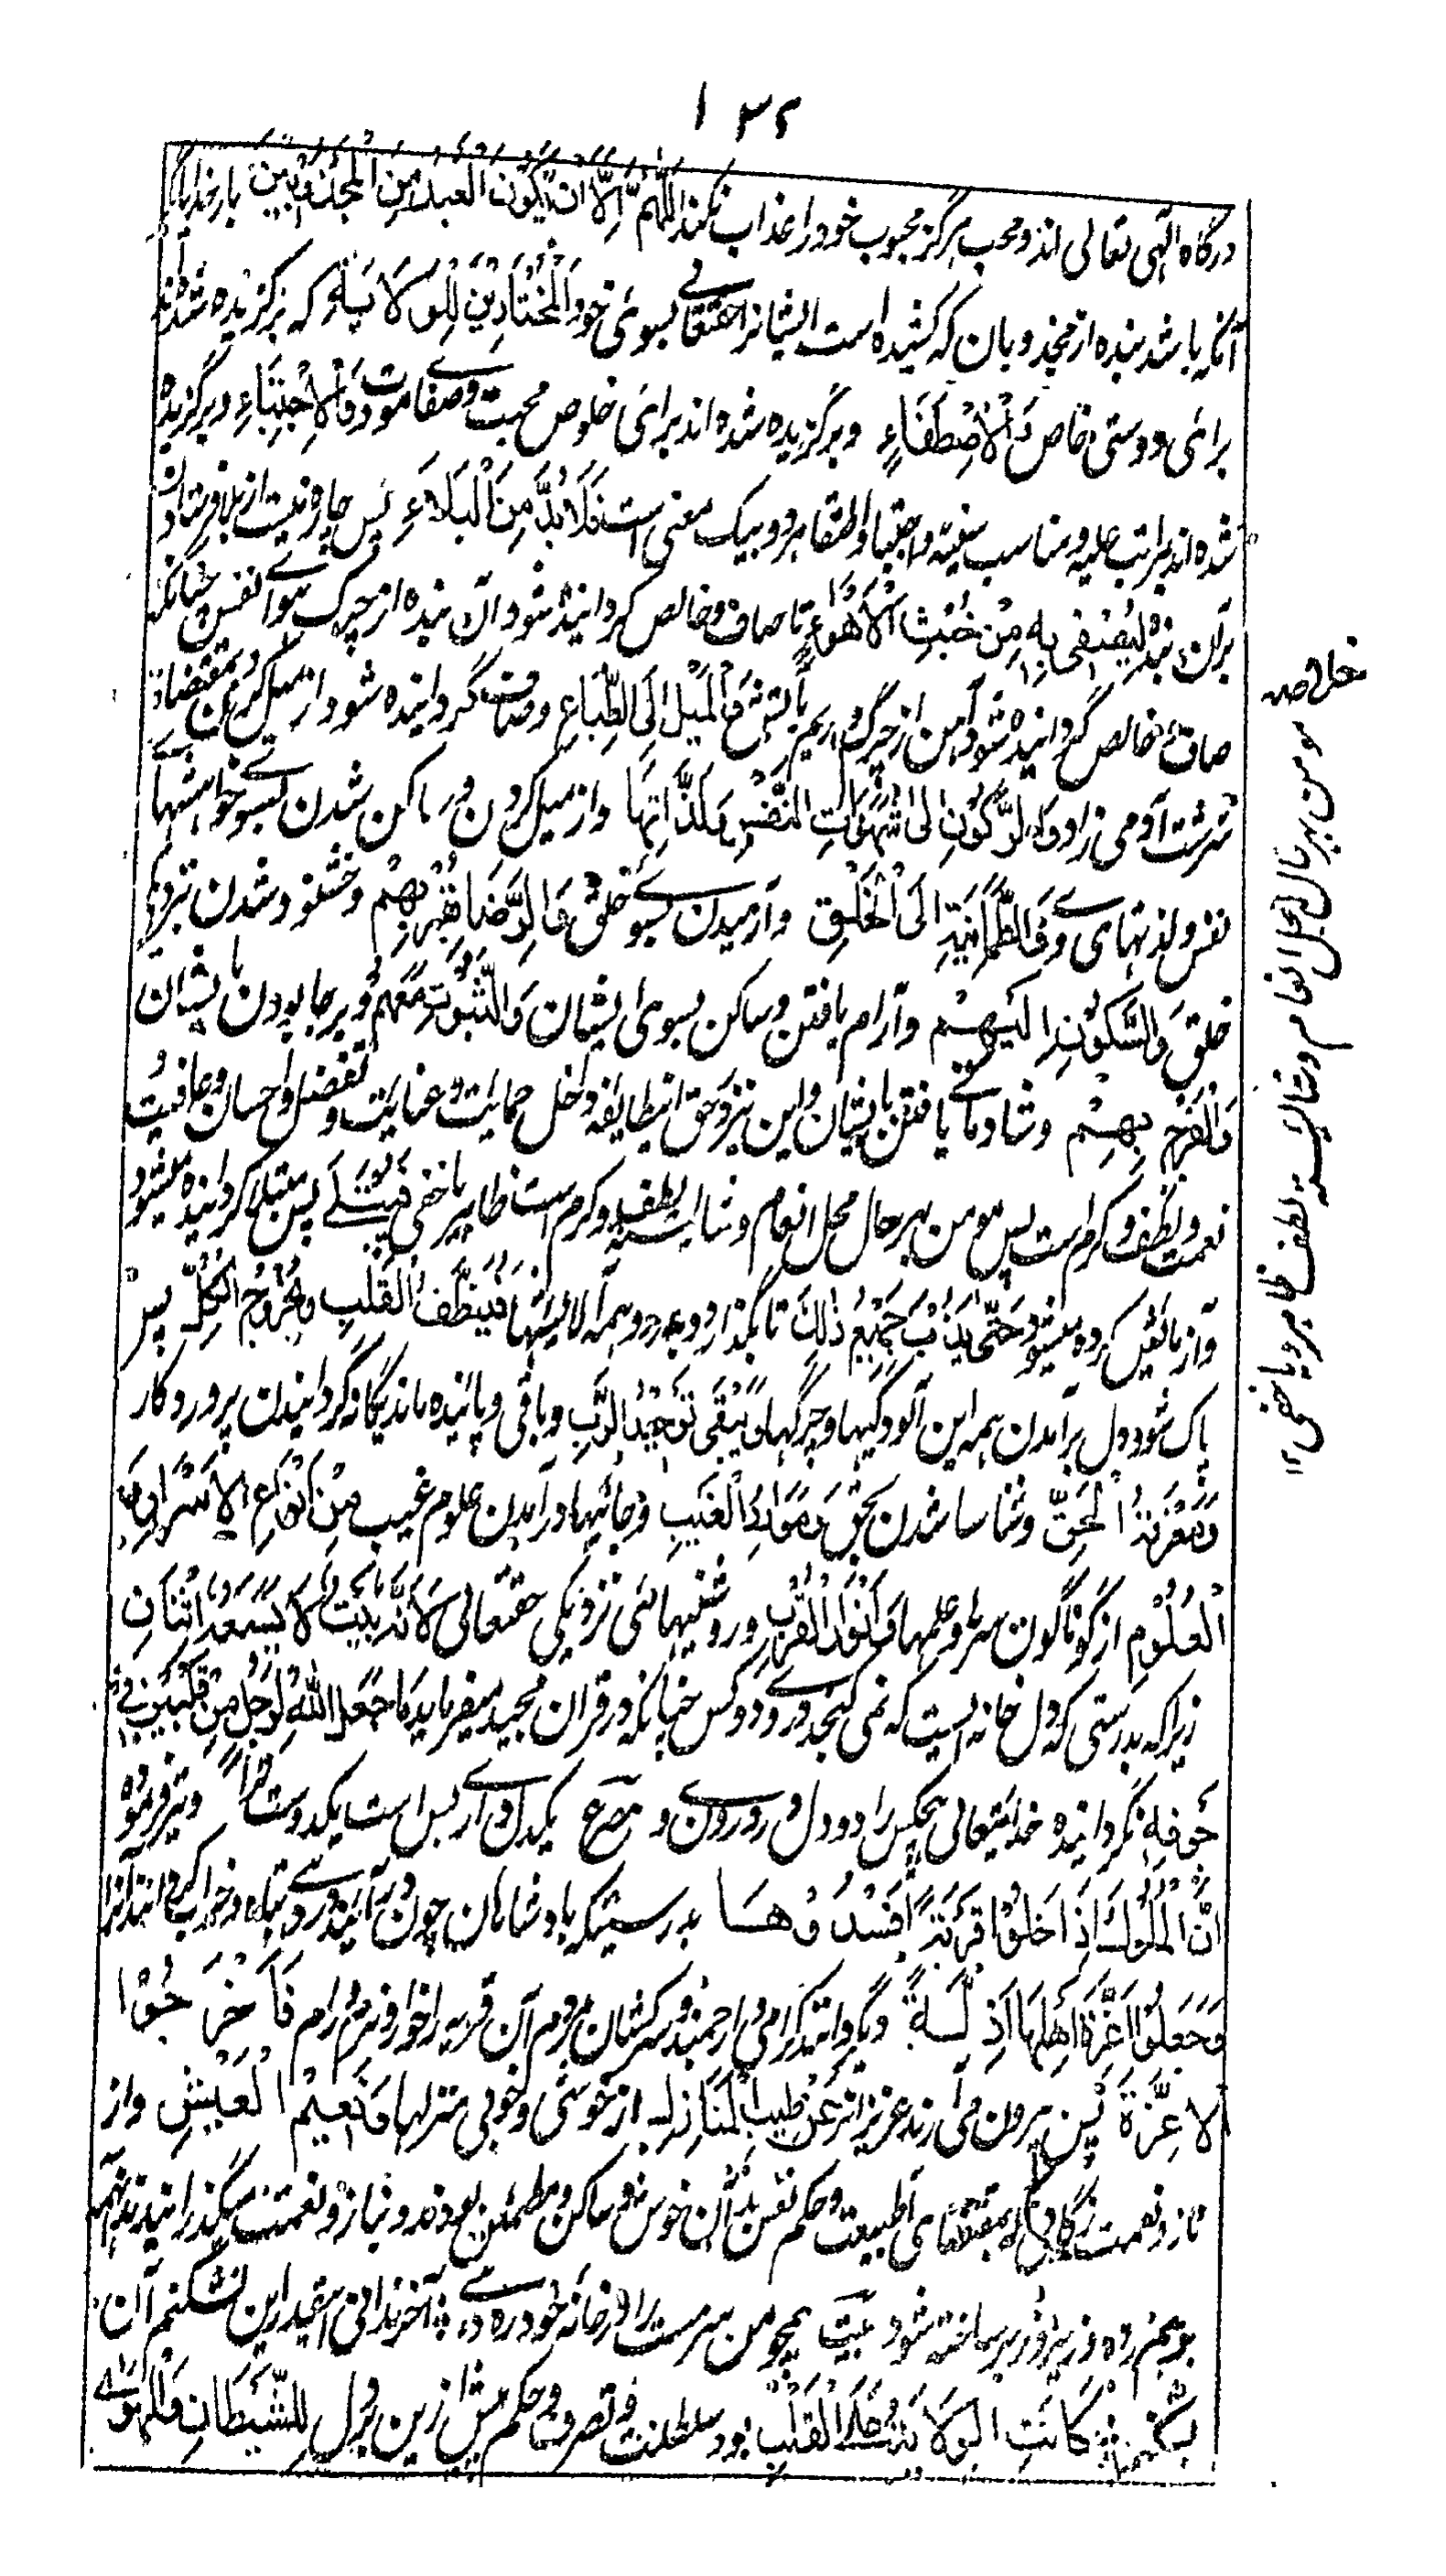 ۱۳۲
درگاه الٰهی تعالی اند و محب هرگز محبوب خود را عذاب نکند اَللّٰهُمَّ اِلَّا اَنْ یَّکُوْنَ الْعَبْدُ مِنَ الْمَجْذُوْبِیْنَ بار خدایا مگر
آنکه باشد بنده از مجذوبان که کشیده است ایشانرا حقتعالی بسوئ خود اَلْمُخْتَارِیْنَ لِلْوِلَایَةِ که برگزیده شده‌اند
برائ دوستی خاص وَالْاِصْطِفَاءِ و برگزیده شده اند برائ خلوص محبت و صفا مودت وَالْاِجْتِبَاءِ و برگزیده
شده اند بمراتب علیه و مناسب سنیه و اجتبا و اصطفا هر دو بیک معنی است فَلَا بُدَّ مِنَ الْبَلَاءِ پس چاره نیست از بلا فرستادن
بر آن بنده لِیُصَفّٰی بِهٖ مِنْ خُبْثِ الْاَهْوِیَةِ تا صاف و خالص گردانیده شود آن بنده از چرک هوای نفس چنانکه
صاف و خالص گردانیده شود آهن از چرک و ریم بآتش وَالْمَیْلِ اِلَی الطِّبَاعِ و صاف گردانیده شود از میل کردن بمقتضای
سرشت آدمی زاد وَالرُّکُوْنِ اِلٰی شَهَوَاتِ النَّفْسِ وَلَذَّاتِهَا و از میل کردن و ساکن شدن بسوی خواهشهای
نفس و لذتهای وی وَالطُّمَانِیْنَةِ اِلَی الْخَلْقِ و آرمیدن بسوی خلق وَالرِّضَا بِقُرْبِهِمْ و خشنود شدن بنزدیکی
خلق وَالسُّکُوْنِ اِلَیْهِمْ و آرام یافتن و ساکن بسوی ایشان وَالثُّبُوْتِ مَعَهُمْ و برجا بودن با ایشان
وَالْفَرَحِ بِهِمْ و شادمانی یافتن بایشان و این نیز در حق اینطایفه داخل حمایت و عنایت و تفضل و احسان و عافیت
نعمت و لطف و کرم است پس مومن بهر حال محل انعام و شایسته لطف و کرم است ظاهر یا خفی فَیُبْتَلٰی پس مبتلا گردانیده میشود
و آزمایش کرده میشود حَتّٰی یَذُوْبَ جَمِیْعُ ذٰلِکَ تا بگذارد و برود همه آلایشها فَیُنَظَّفُ الْقَلْبُ بِخُرُوْجِ الْکُلِّ پس
پاک شود دل برآمدن همه این آلودگیها و چرکها وَیَبْقٰی تَوْحِیْدُ الرَّبِّ و باقی و پائنده ماند یگانه گردانیدن پروردگار
وَمَعْرِفَةُ الْحَقِّ و شناسا شدن بحق وَمَوَارِدُ الْغَیْبِ و جائیها درآمدن علوم غیب مِنْ اَنْوَاعِ الْاَسْرَارِ وَ
الْعُلُوْمِ از گوناگون سرها و علمها وَاَنْوَارِ الْقُرْبِ و روشنیهائ نزدیکی حقتعالی لِاَنَّهٗ بَیْتٌ لَا یَسَعُ اثْنَانِ
زیراکه بدرستی که دل خانه ایست که نمی گنجد در وی دو کس چنانکه در قران مجید میفرماید مَا جَعَلَ اللّٰهُ لِرَجُلٍ مِّنْ قَلْبَیْنِ فِیْ
جَوْفِهٖ نگردانیده خدایتعالی هیچکس را دو دل در درون وی مصرع یکدل داری بس است یکدوست ترا و نیز فرموده
اِنَّ الْمُلُوْکَ اِذَا دَخَلُوْا قَرْیَةً اَفْسَدُوْهَا بدرستیکه پادشاهان چون درآیند در دهی تباه و خراب گردانند آنرا
وَجَعَلُوْا اَعِزَّةَ اَهْلِهَا اَذِلَّةً و بگردانند گرامی و ارجمند و سرکشان مردم آن قریه را خوار و نرم و رام فَاَخْرَجُوْا
الْاَعِزَّةَ پس بیرون می آرند عزیزانرا عَنْ طِیْبِ الْمَنَازِلِ از خوشی و خوبی منزلها وَنَعِیْمِ الْعَیْشِ و از
ناز و نعمت زندگانی که بمقتضای طبیعت و حکم نفس بدان خوش و ساکن و مطمئن بودند و بناز و نعمت میگذرانیدند همه
برهم زده و زیر و زبر ساخته شود بیت همچو من سرمست را در خانه خود ره دهی آخر ندانی اینقدر این بشکنم آن
بشکنم کَانَتِ الْوِلَایَةُ عَلَی الْقَلْبِ بود سلطنت و تصرف و حکم پیش ازین بر دل لِلشَّیْطَانِ وَالْهَوٰی
خلاصه
مومن بهر حال محل انعام و شایسته لطف ظاهر و یا خفی ۱۲